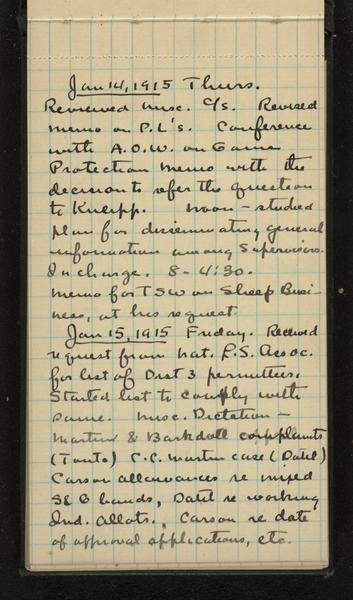 Jan 14, 1915 Thurs.
Reviewed misc. c/s. Revised
memo on P.L's. Conference
with A.O.W. on Game
Protection memo with the
decision to refer the question
to Kneipp. Noon - studied
plan for disseminating general
information among Supervisors.
In charge. 8 - 4:30.
Memo for TSW on Sheep Busi-
ness, at his request
Jan 15, 1915 Friday. Received
request from Nat. L.S. Assoc.
for list of Dist 3 permittees.
Started list to comply with
same. Misc. Dictation -
Martin & Barkdoll complaints
(Tonto) C.C. Martin case (Datil)
Carson allowances re mixed
S & G bands, Datil re working
Ind. Allots., Carson re date
of approval applications, etc.